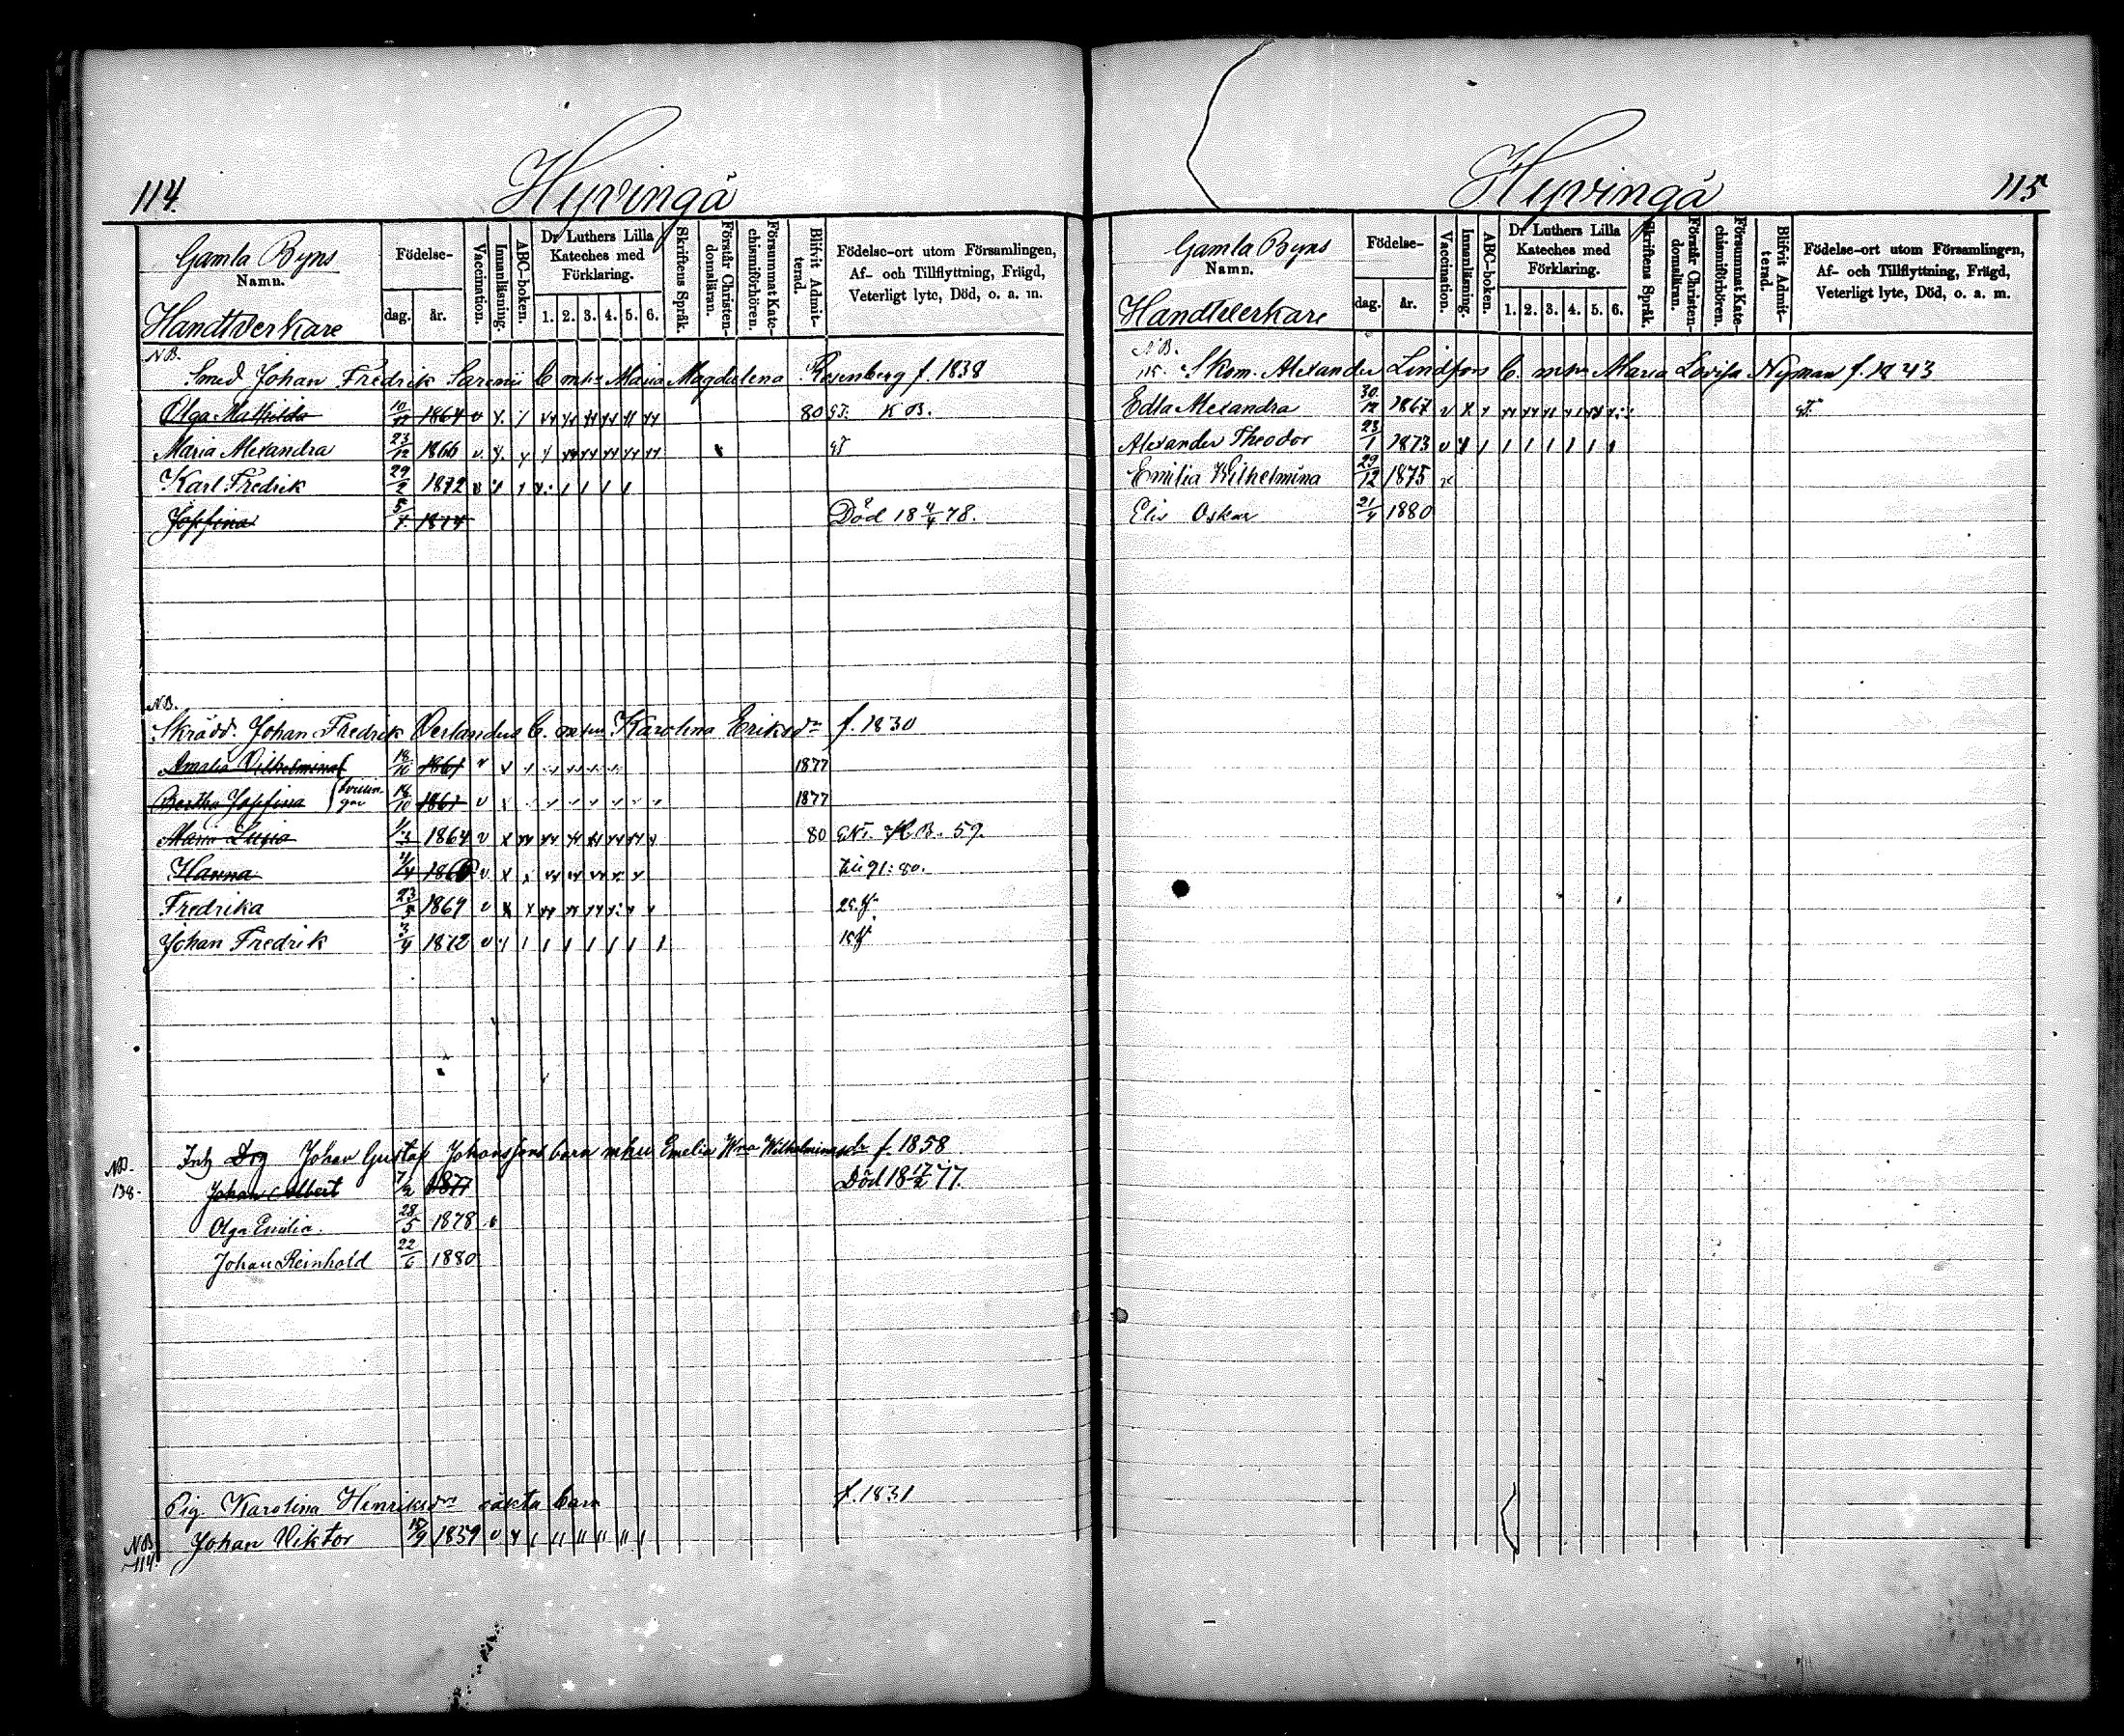 114.
Hyvingå
Gamla Byns
Namn.
Handtverkare
Födelse-
dag.
år.
Vaccination.
Innanläsning.
ABC-boken.
Dr Luthers Lilla
Kateches med
Förklaring.
1. 2. 3. 4. 5. 6.
Skriftens Språk.
Förstår Christen-
domsläran.
Försummat Kate-
chismiförhören.
Blifvit Admit-
terad.
Födelse-ort utom Församlingen,
Af- och Tillflyttning, Frägd,
Veterligt lyte, Död, o. a. m.
NB.
Smed Johan Fredrik B. mhu Maria Magdalena Rosenberg f. 1838
Olga Mathilda 1864 v 80 K B.
Maria Alexandra 23/12 1866 v
Karl Fredrik 29/2 1872
Josefina 1874 Död 18 4/4 78.
NB.
Skrädd. Johan Fredrik B. mhu Karolina Eriksdr f. 1830
Amalia Vilhelmina 18/10 1861 v 1877
Bertha Josefina 18/10 1861 v 1877
Maria 1864 v 80 K.B. 59.
Hanna v 91: 80.
Fredrika 1869 v
Johan Fredrik 3/4 1872 v
NB.
138.
Inh Johan Gustaf Johanssons barn mhu Emelia Wilhelmina f. 1858
Johan Albert 7/2 1877 Död 18 77.
Olga Emilia. 28/5 1878
Johan Reinhold 22/6 1880
Pig. Karolina Henriksdrs oäkta barn f. 1831
NB
114.
Johan Viktor 1859 v
Hyvingå
115
Gamla Byns
Namn.
Handtverkare
Födelse-
dag.
år.
Vaccination.
Innanläsning.
ABC-boken.
Dr Luthers Lilla
Kateches med
Förklaring.
1. 2. 3. 4. 5. 6.
Skriftens Språk.
Förstår Christen-
domsläran.
Försummat Kate-
chismiförhören.
Blifvit Admit-
terad.
Födelse-ort utom Församlingen,
Af- och Tillflyttning, Frägd,
Veterligt lyte, Död, o. a. m.
NB.
115. Skom. Alexander Lindfors B. mhu Maria Lovisa Nyman f. 1843
Edla Alexandra 30/12 1867 v
Alexander Theodor 23/1 1873 v
Emilia Wilhelmina 29/12 1875 v
Elis Oskar 21/4 1880